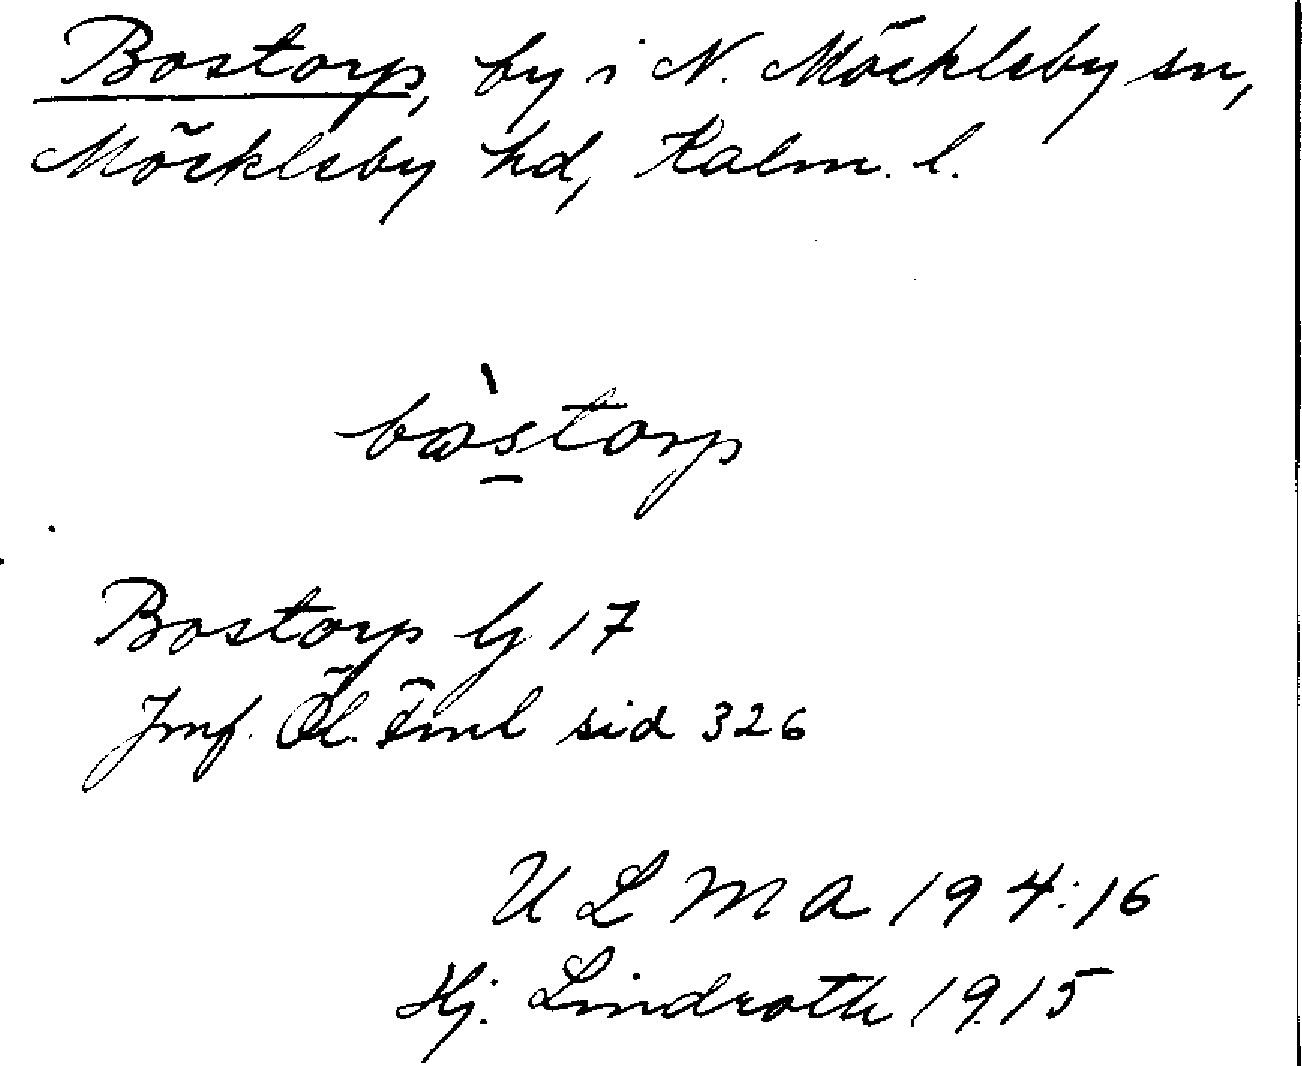 Bostorp, by i N. Möckleby sn,
Möckleby hd, Kalm. l.
bωs̱̀torp
Bostorp G 17
Jmf. Öl. Fml sid 326
ULMA 194:16
Hj. Lindroth 1915